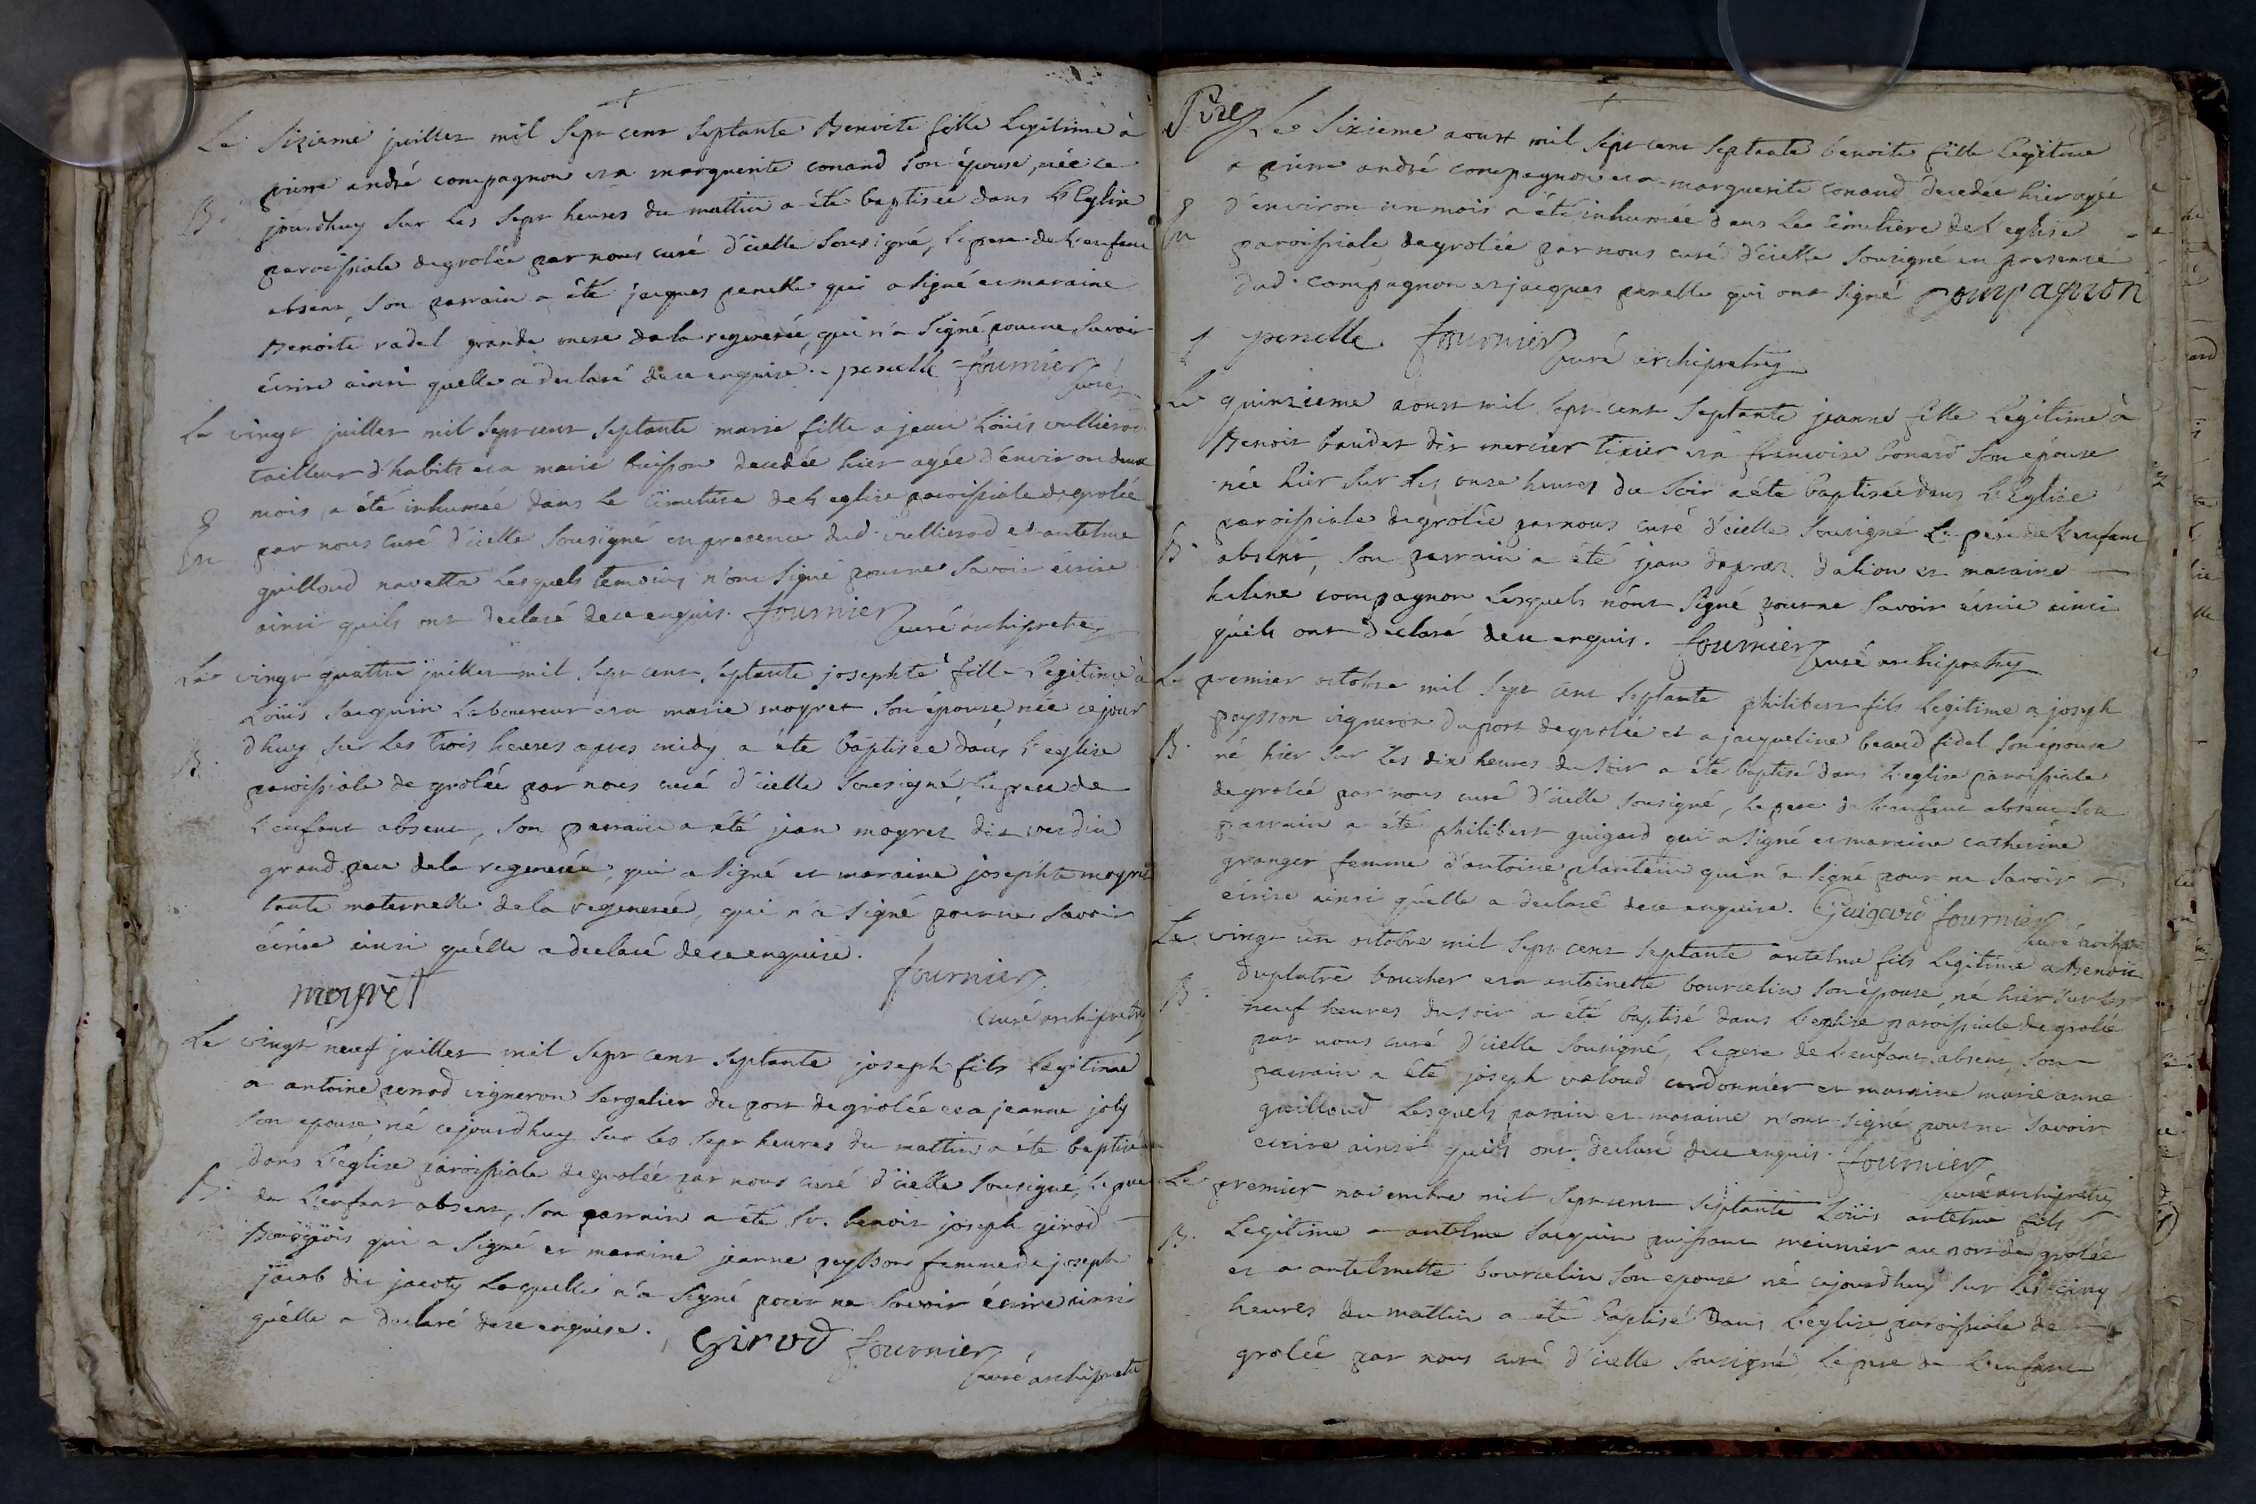 Le Sixieme juillet mil Sept cent Septante Benoite fille Legitime à
pierre andré compagnon et a marguerite conand Son épouse, née ce
B. jourdhuy Sur Les Sept heures du mattin a été baptisée dans L'Eglise
paroissiale de grolée par nous curé d'icelle Sousigné, le pere de L'enfant
absent, Son parrain a été jacques penelle qui a signé et maraine
Benoite radel grande mere de la regenerée, qui n'a Signé pour ne Savoir
écrire ainsi quelle a declaré de ce enquise. penelle fournier
curé
Le vingt juillet mil Sept cent Septante marie fille a jean Loüis vullierod
tailleur d'habits et a marie buisson decedée hier agée d'environ deux
mois, a été inhumée dans Le Cimetiere de L'eglise paroissiale de grolée
En par nous curé d'icelle Sousigné en presence dud. vullierod et antelme
guilloud navetta Lesquels temoins n'ont Signé pour ne Savoir écrire
ainsi quils ont declaré de ce enquis. fournier curé archipretre
Le vingt quattre juillet mil Sept cent Septante josephte fille Legitime à
Loüis Sarguin Laboureur et a marie moyret Son épouse, née ce jour
B. dhuy Sur Les trois heures apres midy a été baptisée dans l'eglise
paroissiale de grolée par nous curé d'icelle Sousigné, Le pere de
L'enfant absent, Son parrain a été jean moyret dit verdin
grand pere de la regenerée, qui a signé et maraine josephte moyret
tante maternelle de la regenerée, qui n'a Signé pour ne Savoir
écrire ainsi qu'elle a declaré de ce enquise.
moyret fournier
curé archipretre
Le vingt neuf juillet mil Sept cent Septante joseph fils Legitime
a antoine penod vigneron Sergelier du port de grolée et a jeanne joly
Son epouse, né cejourdhuy Sur Les Sept heures du mattin a été baptisé
dans L'eglise paroissiale de grolée par nous curé d'icelle Sousigné, Le pere
B. de L'enfant absent, Son parrain a été Sr. benoit joseph girod
Bourgeois qui a Signé et maraine jeanne peysson femme de joseph
jacob dit jacoty Laquelle n'a Signé pour ne Savoir écrire ainsi
qu'elle a declaré de ce enquise. Girod fournier
curé archipretre
Le Sixieme aoust mil Sept cent Septante benoite fille Legitime
a pierre andré compagnon et a marguerite conand decedée hier agée
En d'environ un mois a été inhumée dans Le Cimetiere de L'eglise
paroissiale de grolée par nous curé d'icelle Sousigné en presence
dud. compagnon et jacques penelle qui ont Signé Compagnon
penelle fournier curé archipretre
Le quinzieme aoust mil Sept cent Septante jeanne fille Legitime à
Benoit baudet dit mercier tixier et a francoise bonard Son épouse
née hier Sur Les onze heures du Soir a été baptisée dans L'Eglise
paroissiale de grolée par nous curé d'icelle Sousigné Le pere de L'enfant
B. absent, Son parrain a été jean et maraine
helene compagnon Lesquels n'ont Signé pour ne Savoir écrire ainsi
qu'ils ont declaré de ce enquis. fournier curé archipretre
Le premier octobre mil Sept cent Septante philibert fils Legitime a joseph
peysson vigneron du port de grolée et a jacqueline beaud fidel Son épouse
B. né hier Sur Les dix heures du Soir a été baptisé dans L'eglise paroissiale
de grolée par nous curé d'icelle Sousigné, Le pere de L'enfant absent Son
parrain a été philibert guigard qui a Signé et maraine catherine
granger femme d'antoine plantain qui n'a Signé pour ne Savoir
écrire ainsi qu'elle a declaré de ce enquise. Guigard fournier
curé archipretre
Le vingt un octobre mil Sept cent Septante antelme fils Legitime a Benoit
duplatre boucher et a antoinette bourcelin Son épouse, né hier Sur Les
B. neuf heures du soir a été baptisé dans L'eglise paroissiale de grolée
par nous curé d'icelle Sousigné, Le pere de L'enfant absent, Son
parrain a été joseph cordonnier et maraine marie anne
guilloud Lesquels parain et maraine n'ont Signé pour ne Savoir
ecrire ainsi qu'ils ont declaré de ce enquis. fournier
curé archipretre
Le premier novembre mil Sept cent Septante Loüis antelme fils
B. Legitime a antelme Sarguin meunier au port de grolée
et a antelmette bourcelin Son epouse né cejourdhuy Sur Les cinq
heures du mattin a été baptisé Dans L'eglise paroissiale de
grolée par nous curé d'icelle Sousigné Le pere de L'enfant